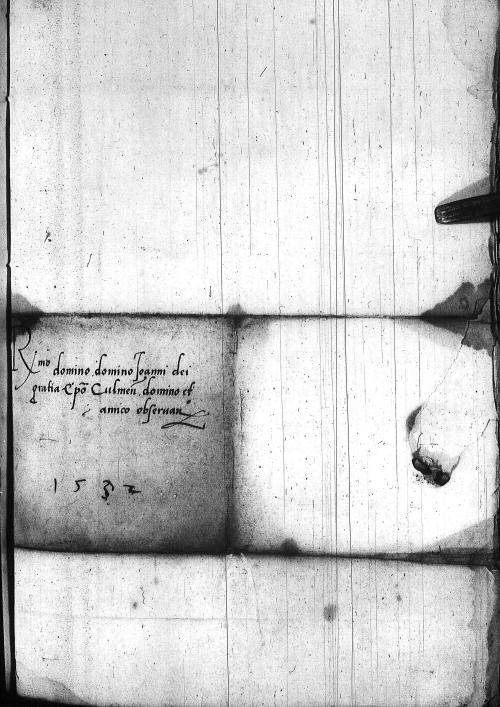 R^mo domino, domino Joanni dei
gratia Epõ Culmeñ, domino et
amico obseruañ
1532